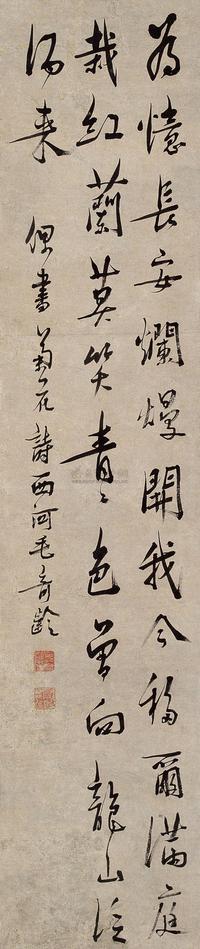 為憶長安爛熳開我今移爾滿庭
栽紅蘭莫笑青々色曾向龍山泛
酒来
偶書菊花詩西河毛奇齡